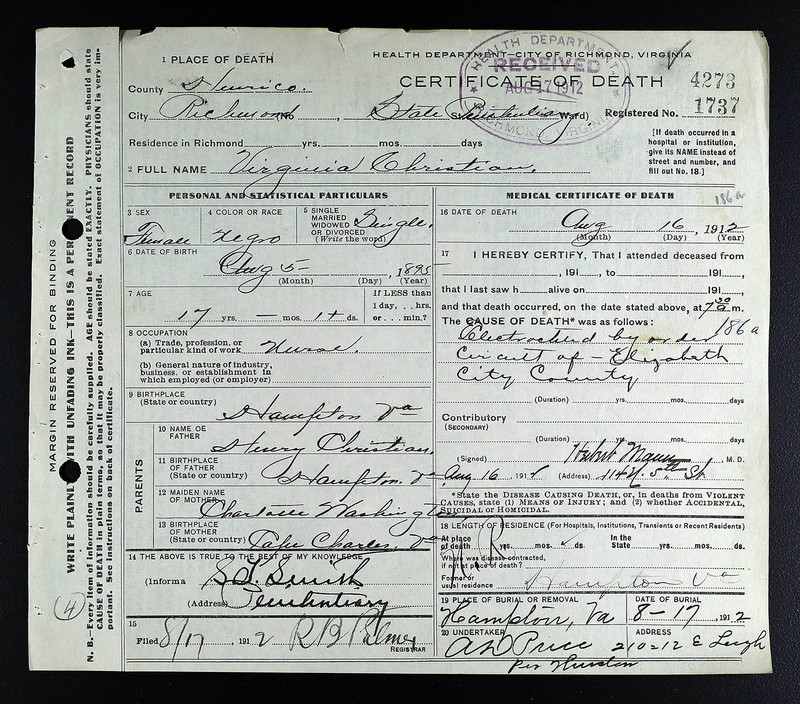 MARGIN RESERVED FOR BINDING
WRITE PLAINLY WITH UNFADING INK—THIS IS A PERMANENT RECORD
N. B.—Every item of information should be carefully supplied. AGE should be stated EXACTLY. PHYSICIANS should state
CAUSE OF DEATH in plain terms, so that it may be properly classified. Exact statement of OCCUPATION is very im-
portant. See instructions on back of certificate.
4
HEALTH DEPARTMENT—CITY OF RICHMOND, VIRGINIA
CERTIFICATE OF DEATH
HEALTH DEPARTMENT
RECEIVED
AUG 17 1912
RICHMOND, VIRGINIA
4273
Registered No. 1737
[If death occurred in a
hospital or institution,
give its NAME instead of
street and number, and
fill out No. 18.]
1 PLACE OF DEATH
County Henrico.
City Richmond No , State Penitentiary Ward)
Residence in Richmond yrs. mos. days
2 FULL NAME Virginia Christian.
PERSONAL AND STATISTICAL PARTICULARS
3 SEX
Female
4 COLOR OR RACE
Negro
5 SINGLE
MARRIED
WIDOWED
OR DIVORCED
(Write the word)
Single.
6 DATE OF BIRTH
Aug 5- , 1895
(Month) (Day) (Year)
7 AGE
17 yrs. — mos. 1+ ds.
If LESS than
1 day, . . hrs.
or . . . min.?
8 OCCUPATION
(a) Trade, profession, or
particular kind of work Nurse.
(b) General nature of industry,
business, or establishment in
which employed (or employer)
9 BIRTHPLACE
(State or country)
Hampton Va
PARENTS
10 NAME OF
FATHER
Henry Christian.
11 BIRTHPLACE
OF FATHER
(State or country)
Hampton. Va
12 MAIDEN NAME
OF MOTHER
Charlotte Washington
13 BIRTHPLACE
OF MOTHER
(State or country)
Charles, Va
14 THE ABOVE IS TRUE TO THE BEST OF MY KNOWLEDGE
(Informa S. T. Smith
(Address) Penitentiary
15
Filed 8/17 191 2 R B Palmer
REGISTRAR
MEDICAL CERTIFICATE OF DEATH
186a
16 DATE OF DEATH
Aug 16 , 1912
(Month) (Day) (Year)
17 I HEREBY CERTIFY, That I attended deceased from
, 191 , to , 191 ,
that I last saw h alive on , 191 ,
and that death occurred, on the date stated above, at 7 30 a m.
The CAUSE OF DEATH* was as follows: 186a
Electrocuted by order
Circuit of — Elizabeth
City County
(Duration) yrs. mos. days
Contributory
(SECONDARY)
(Duration) yrs. mos. days
(Signed) Mann , M. D.
Aug 16 191 2 (Address) 114 N. 5th St
*State the DISEASE CAUSING DEATH, or, in deaths from VIOLENT
CAUSES, state (1) MEANS OF INJURY; and (2) whether ACCIDENTAL,
SUICIDAL or HOMICIDAL.
18 LENGTH OF RESIDENCE (For Hospitals, Institutions, Transients or Recent Residents)
At place
of death yrs. mos. ds.
In the
State yrs. mos. ds.
Where was disease contracted,
if not at place of death?
Former or
usual residence Hampton Va
19 PLACE OF BURIAL OR REMOVAL
Hampton, Va
DATE OF BURIAL
8-17 , 191 2
20 UNDERTAKER
A D Price
ADDRESS
210-12 E Leigh
Per